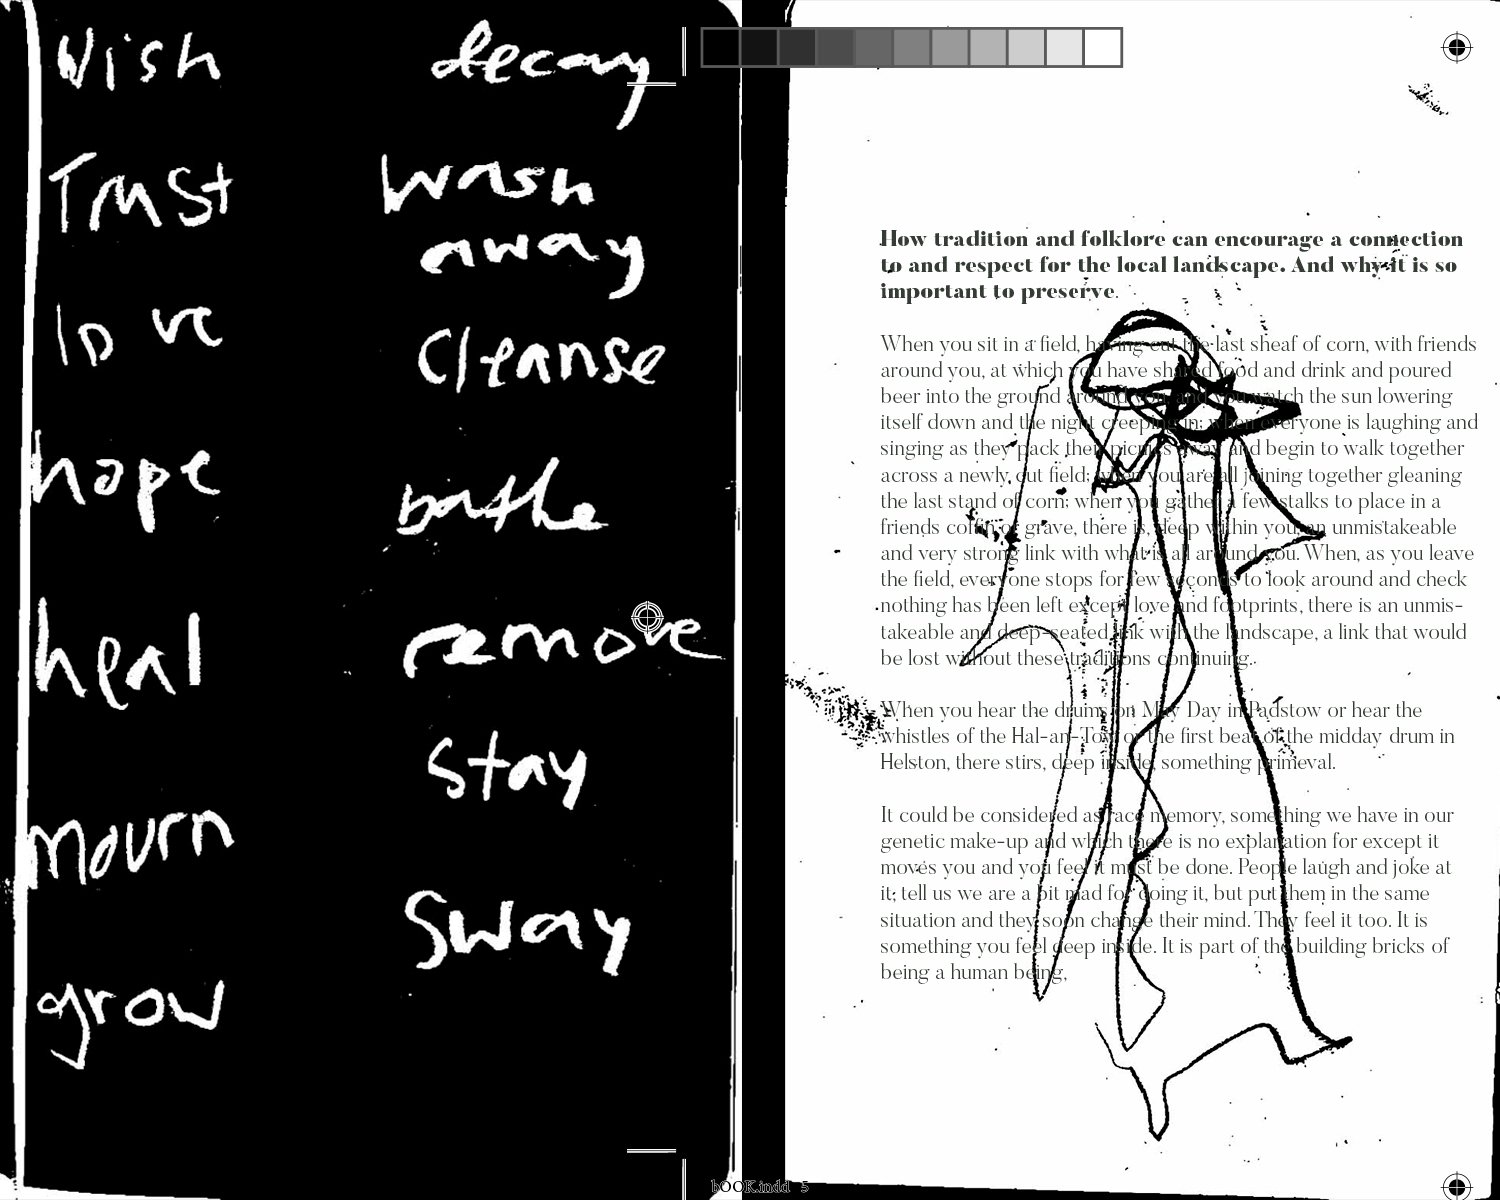 Wish
Trust
love
hope
heal
mourn
grow
decay
wash
away
cleanse
bathe
remove
stay
sway
How tradition and folklore can encourage a connection
to and respect for the local landscape. And why it is so
important to preserve.
When you sit in a field, having cut the last sheaf of corn, with friends
around you, at which you have shared food and drink and poured
beer into the ground around you, and you watch the sun lowering
itself down and the night creeping in; when everyone is laughing and
singing as they pack their picnics away and begin to walk together
across a newly cut field; when you are all joining together gleaning
the last stand of corn; when you gather a few stalks to place in a
friends coffin or grave, there is, deep within you, an unmistakeable
and very strong link with what is all around you. When, as you leave
the field, everyone stops for few seconds to look around and check
nothing has been left except love and footprints, there is an unmis-
takeable and deep-seated link with the landscape, a link that would
be lost without these traditions continuing.
When you hear the drums on May Day in Padstow or hear the
whistles of the Hal-an-Tow or the first beat of the midday drum in
Helston, there stirs, deep inside, something primeval.
It could be considered as race memory, something we have in our
genetic make-up and which there is no explanation for except it
moves you and you feel it must be done. People laugh and joke at
it; tell us we are a bit mad for doing it, but put them in the same
situation and they soon change their mind. They feel it too. It is
something you feel deep inside. It is part of the building bricks of
being a human being,
bOOK.indd 5